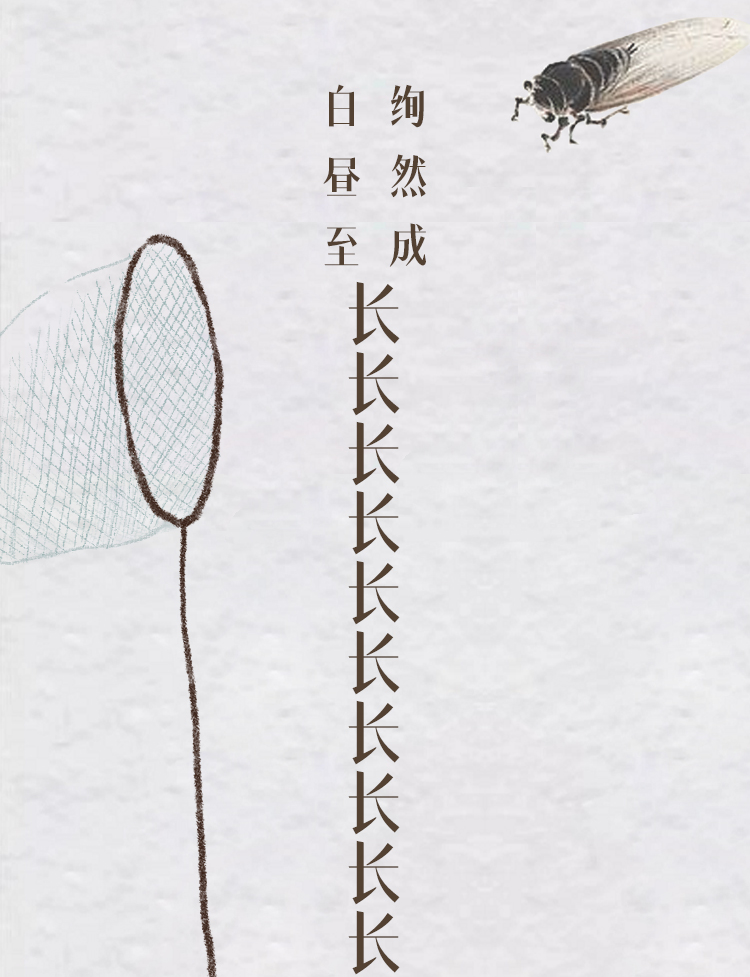 绚然成
白昼至
长长长长长长长长长长